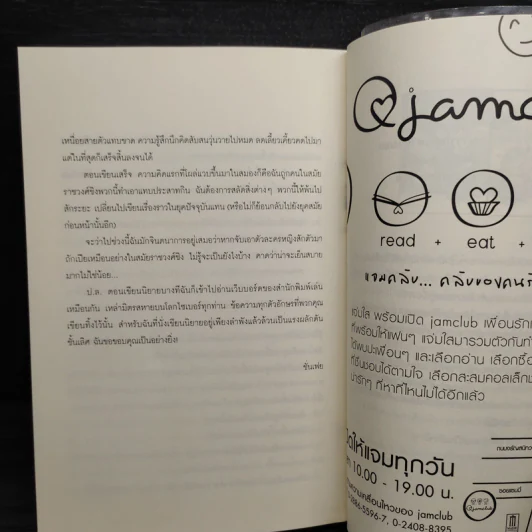 เหนื่อยสายตัวแทบขาด ความรู้สึกนึกคิดสับสนวุ่นวายไปหมด ลดเลี้ยวเคี้ยวคดไปมา
แต่ในที่สุดก็เสร็จสิ้นลงจนได้
ตอนเขียนเสร็จ ความคิดแรกที่โผล่แวบขึ้นมาในสมองก็คือฉันถูกคนในสมัย
ราชวงศ์ชิงพวกนี้ทำเอาแทบประสาทกิน ฉันต้องการสลัดสิ่งต่างๆ พวกนี้ให้พ้นไป
สักระยะ เปลี่ยนไปเขียนเรื่องราวในยุคปัจจุบันแทน (หรือไม่ก็ย้อนกลับไปยังยุคสมัย
ก่อนหน้านั้นอีก)
จะว่าไปช่วงนี้ฉันมักจินตนาการอยู่เสมอว่าหากจับเอาตัวละครหญิงสักตัวมา
ถักเปียเหมือนอย่างในสมัยราชวงศ์ชิง ไม่รู้จะเป็นยังไงบ้าง คาดว่าน่าจะเย็นสบาย
มากไม่ใช่น้อย...
ป.ล. ตอนเขียนนิยายบางทีฉันก็เข้าไปอ่านเว็บบอร์ดของสำนักพิมพ์เล่น
เหมือนกัน เหล่ามิตรสหายบนโลกไซเบอร์ทุกท่าน ข้อความทุกตัวอักษรที่พวกคุณ
เขียนทิ้งไว้นั้น สำหรับฉันที่นั่งเขียนนิยายอยู่เพียงลำพังแล้วล้วนเป็นแรงผลักดัน
ชั้นเลิศ ฉันขอขอบคุณเป็นอย่างยิ่ง!
ซันเฟย
jamc
read + eat +
แจมคลับ... คลับของคนรั
แจ่มใส พร้อมเปิด jamclub เพื่อนรัก
ที่พร้อมให้แฟนๆ แจ่มใสมารวมตัวกัน
ได้พบปะเพื่อนๆ และเลือกอ่าน เลือกซื้อ
ที่ชื่นชอบได้ตามใจ เลือกสะสมคอลเล็ก
น่ารักๆ ที่หาที่ไหนไม่ได้อีกแล้ว
ดให้แจมทุกวัน
10.00 - 19.00 น.
ความเคลื่อนไหวของ jamclub
2886-5596-7, 0-2408-8395
ซอยแฮมมี่
jamclub